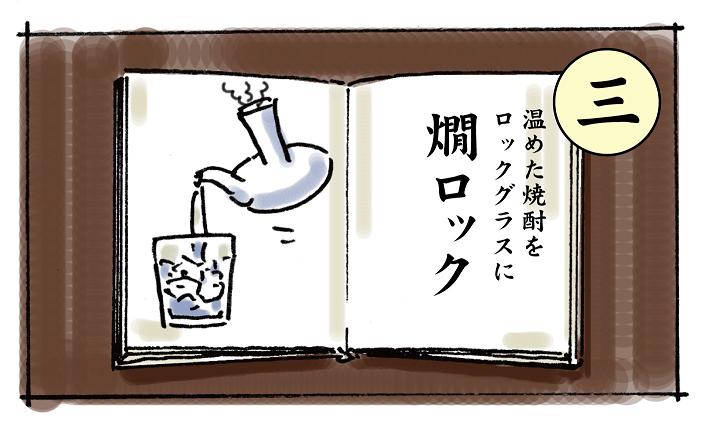 三
温めた焼酎を
ロックグラスに
燗ロック